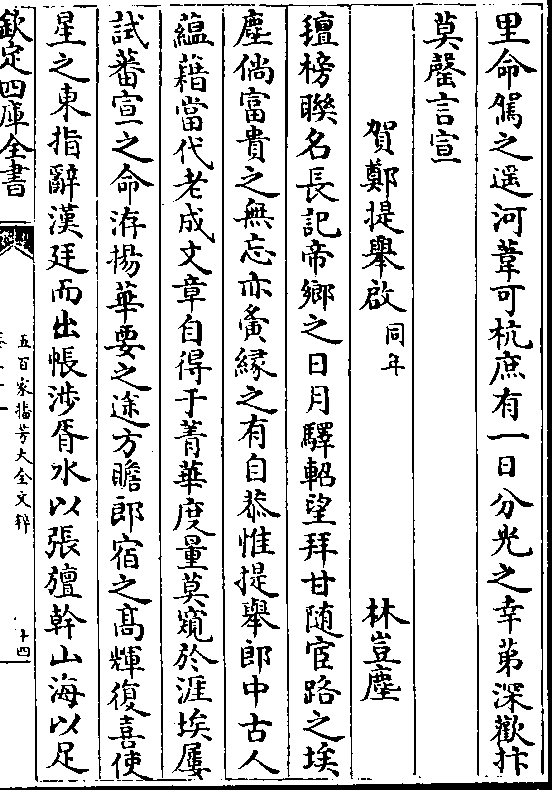 里命駕之遥河葦可杭庶有一日分光之幸第深歡抃
莫罄言宣
賀鄭提舉啟 同年 林豈塵
氊榜聨名長記帝鄉之日月驛軺望拜甘随宦路之埃
塵倘富貴之無忘亦夤縁之有自恭惟提舉郎中古人
蘊藉當代老成文章自得于菁華度量莫窺於涯埃屢
試蕃宣之命洊揚華要之途方瞻郎宿之高輝復喜使
星之東指辭漢廷而出帳涉胥水以張旜幹山海以足
欽定四庫全書
五百家播芳大全文粹
十四